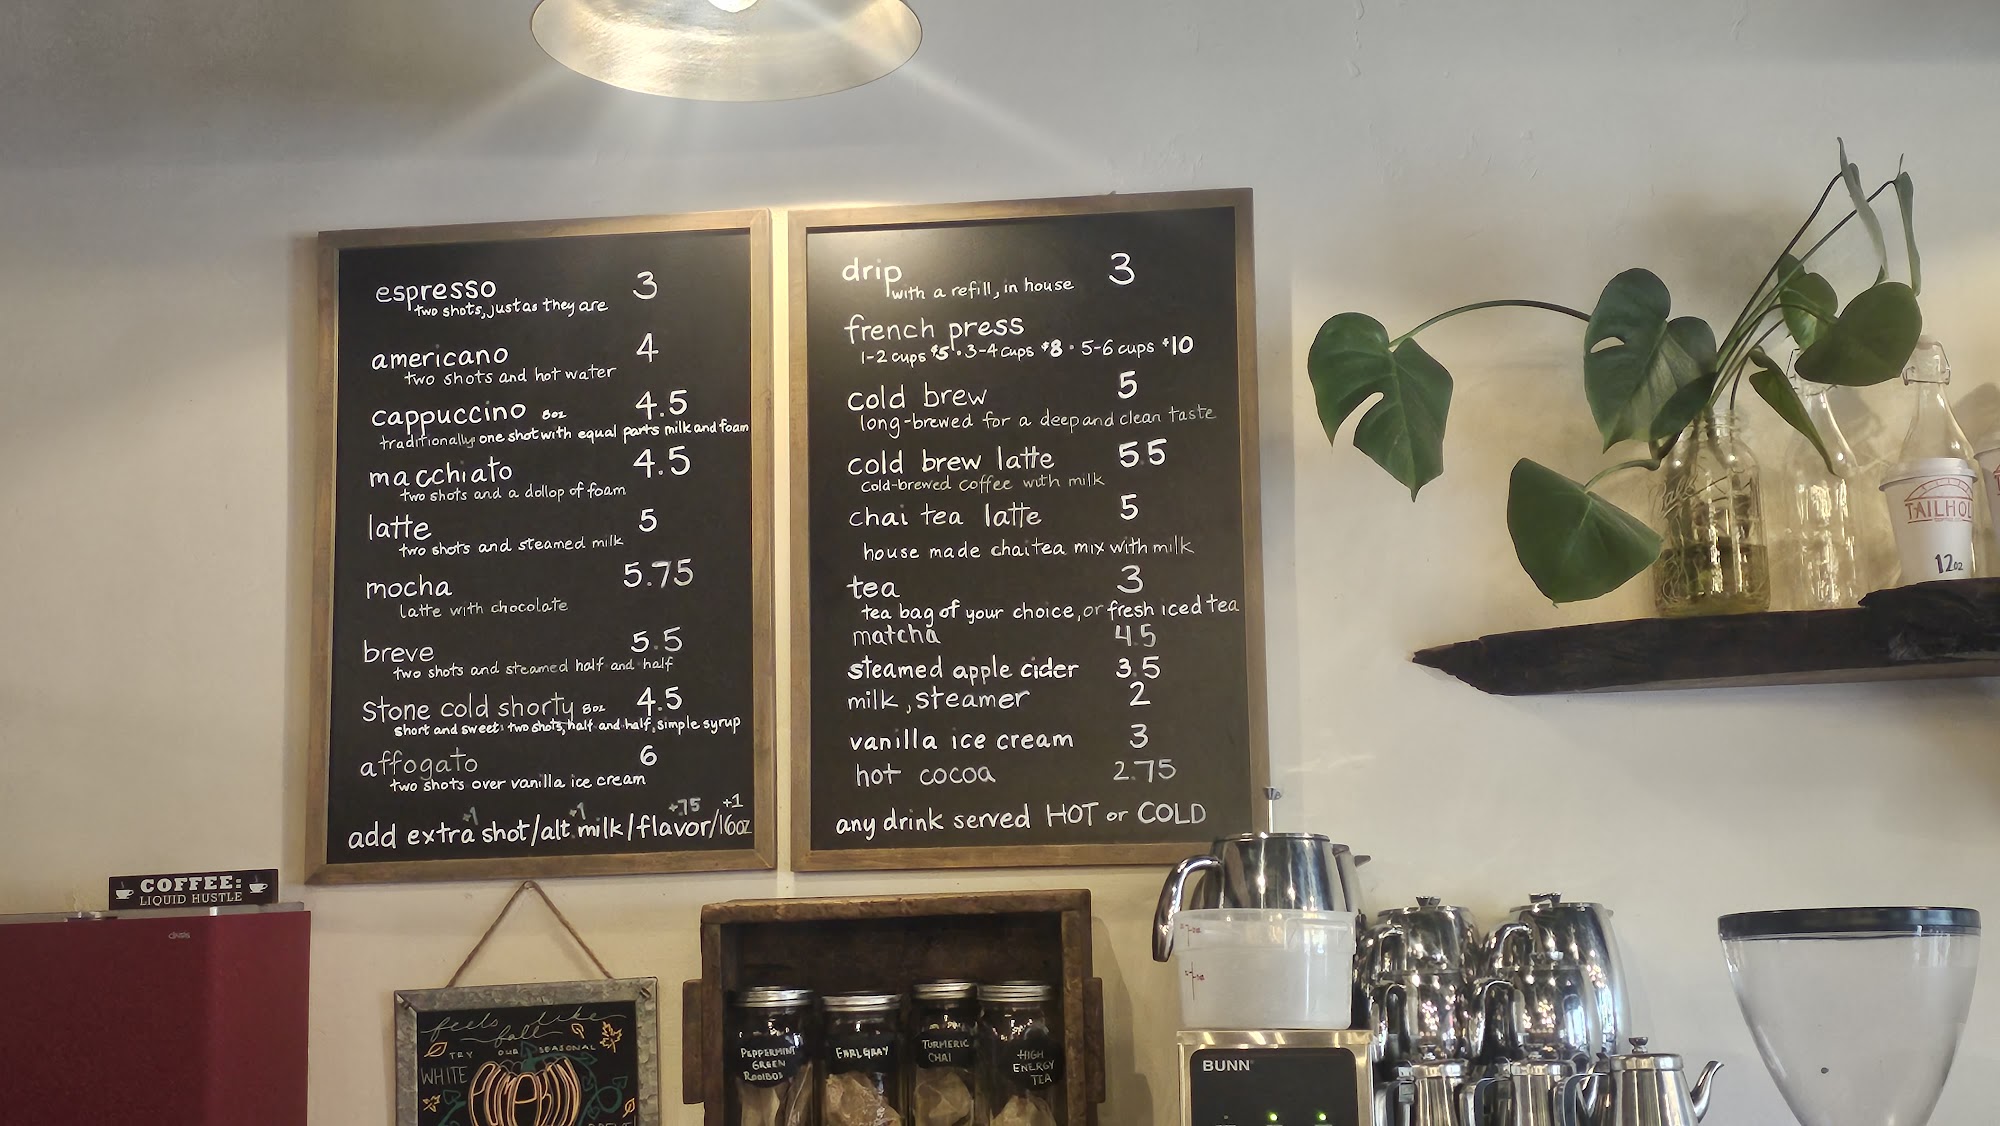 espresso 3
two shots, just as they are
americano 4
two shots and hot water
cappuccino 8oz 4.5
traditionally: one shot with equal parts milk and foam
macchiato 4.5
two shots and a dollop of foam
latte 5
two shots and steamed milk
mocha 5.75
latte with chocolate
breve 5.5
two shots and steamed half and half
stone cold shorty 8oz 4.5
short and sweet: two shots, half and half, simple syrup
affogato 6
two shots over vanilla ice cream
+1 +1 +.75 +1
add extra shot/alt. milk/flavor/16oz
drip 3
with a refill, in house
french press
1-2 cups $5 • 3-4 cups $8 • 5-6 cups $10
cold brew 5
long-brewed for a deep and clean taste
cold brew latte 5.5
cold-brewed coffee with milk
chai tea latte 5
house made chai tea mix with milk
tea 3
tea bag of your choice, or fresh iced tea
matcha 4.5
steamed apple cider 3.5
milk, steamer 2
vanilla ice cream 3
hot cocoa 2.75
any drink served HOT or COLD
TAILHOL
12oz
COFFEE:
LIQUID HUSTLE
feels like
fall
TRY OUR SEASONAL
WHITE PUMPKIN
PEPPERMINT
GREEN
ROOIBOS
EARL GRAY
TURMERIC
CHAI
HIGH
ENERGY
TEA
BUNN